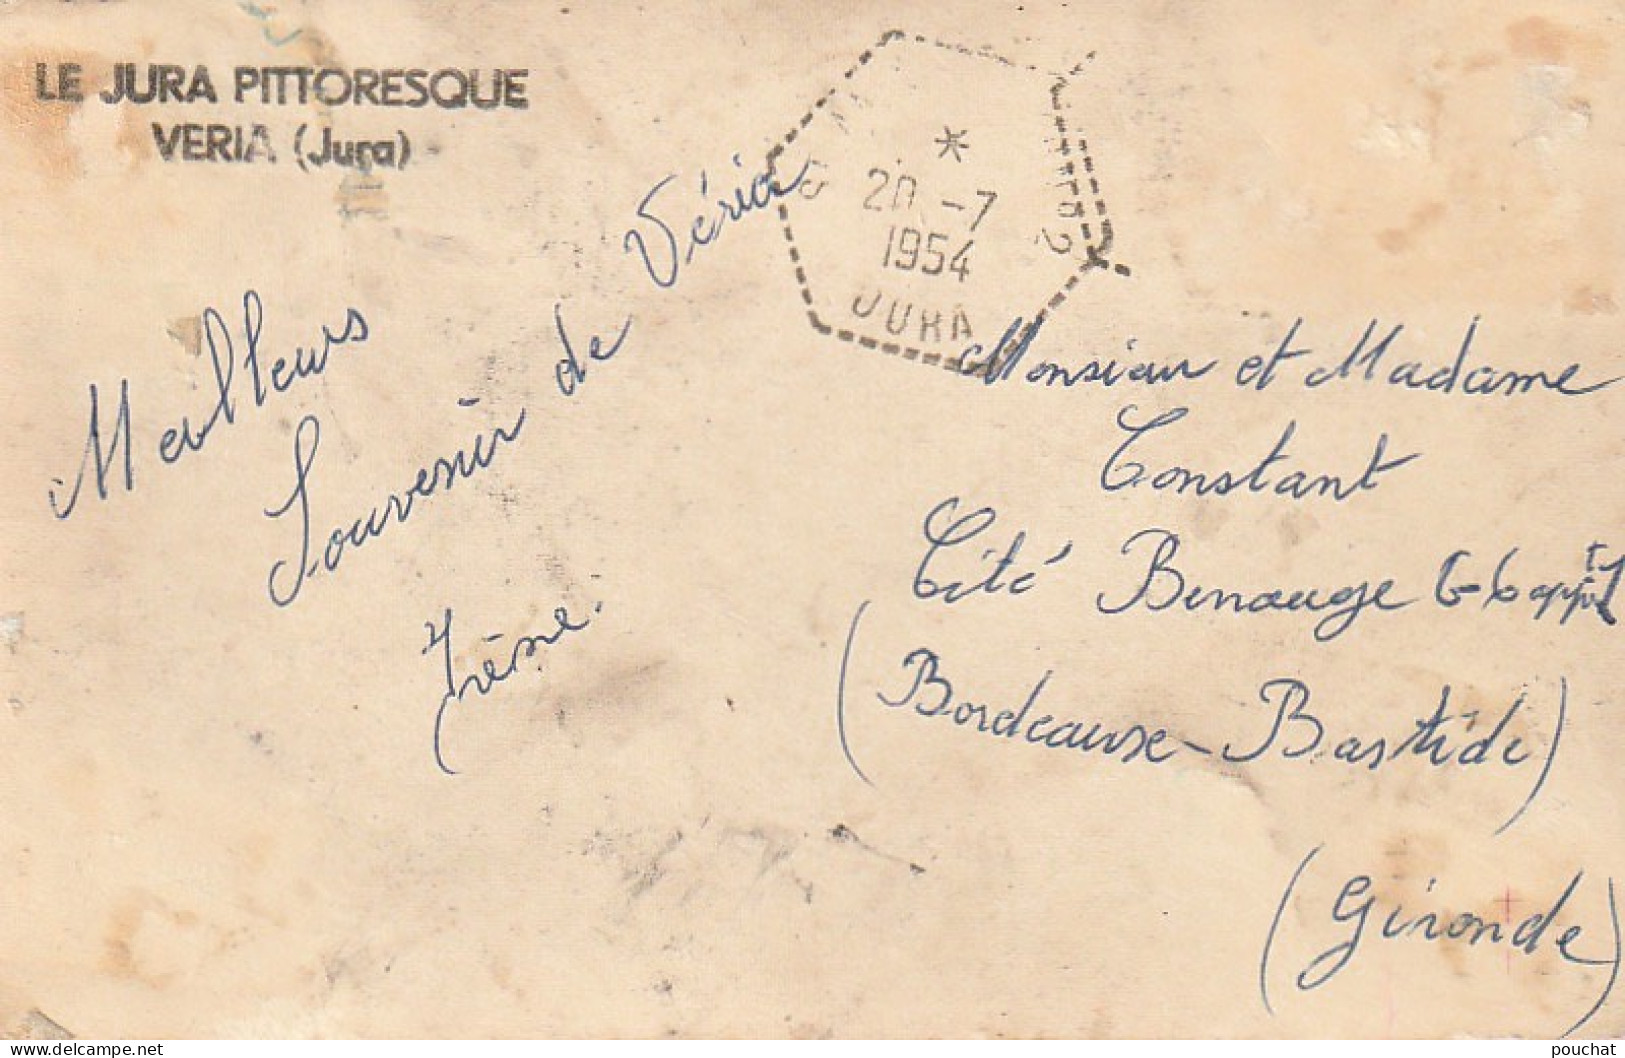 LE JURA PITTORESQUE
VERIA (Jura)
*
20 -7
1954
JURA
Meilleurs
Souvenir de Véria
Irène.
Monsieur et Madame
Constant
Cité Benauge G-6 appt 1
(Bordeaux-Bastide)
(Gironde)
pouchat